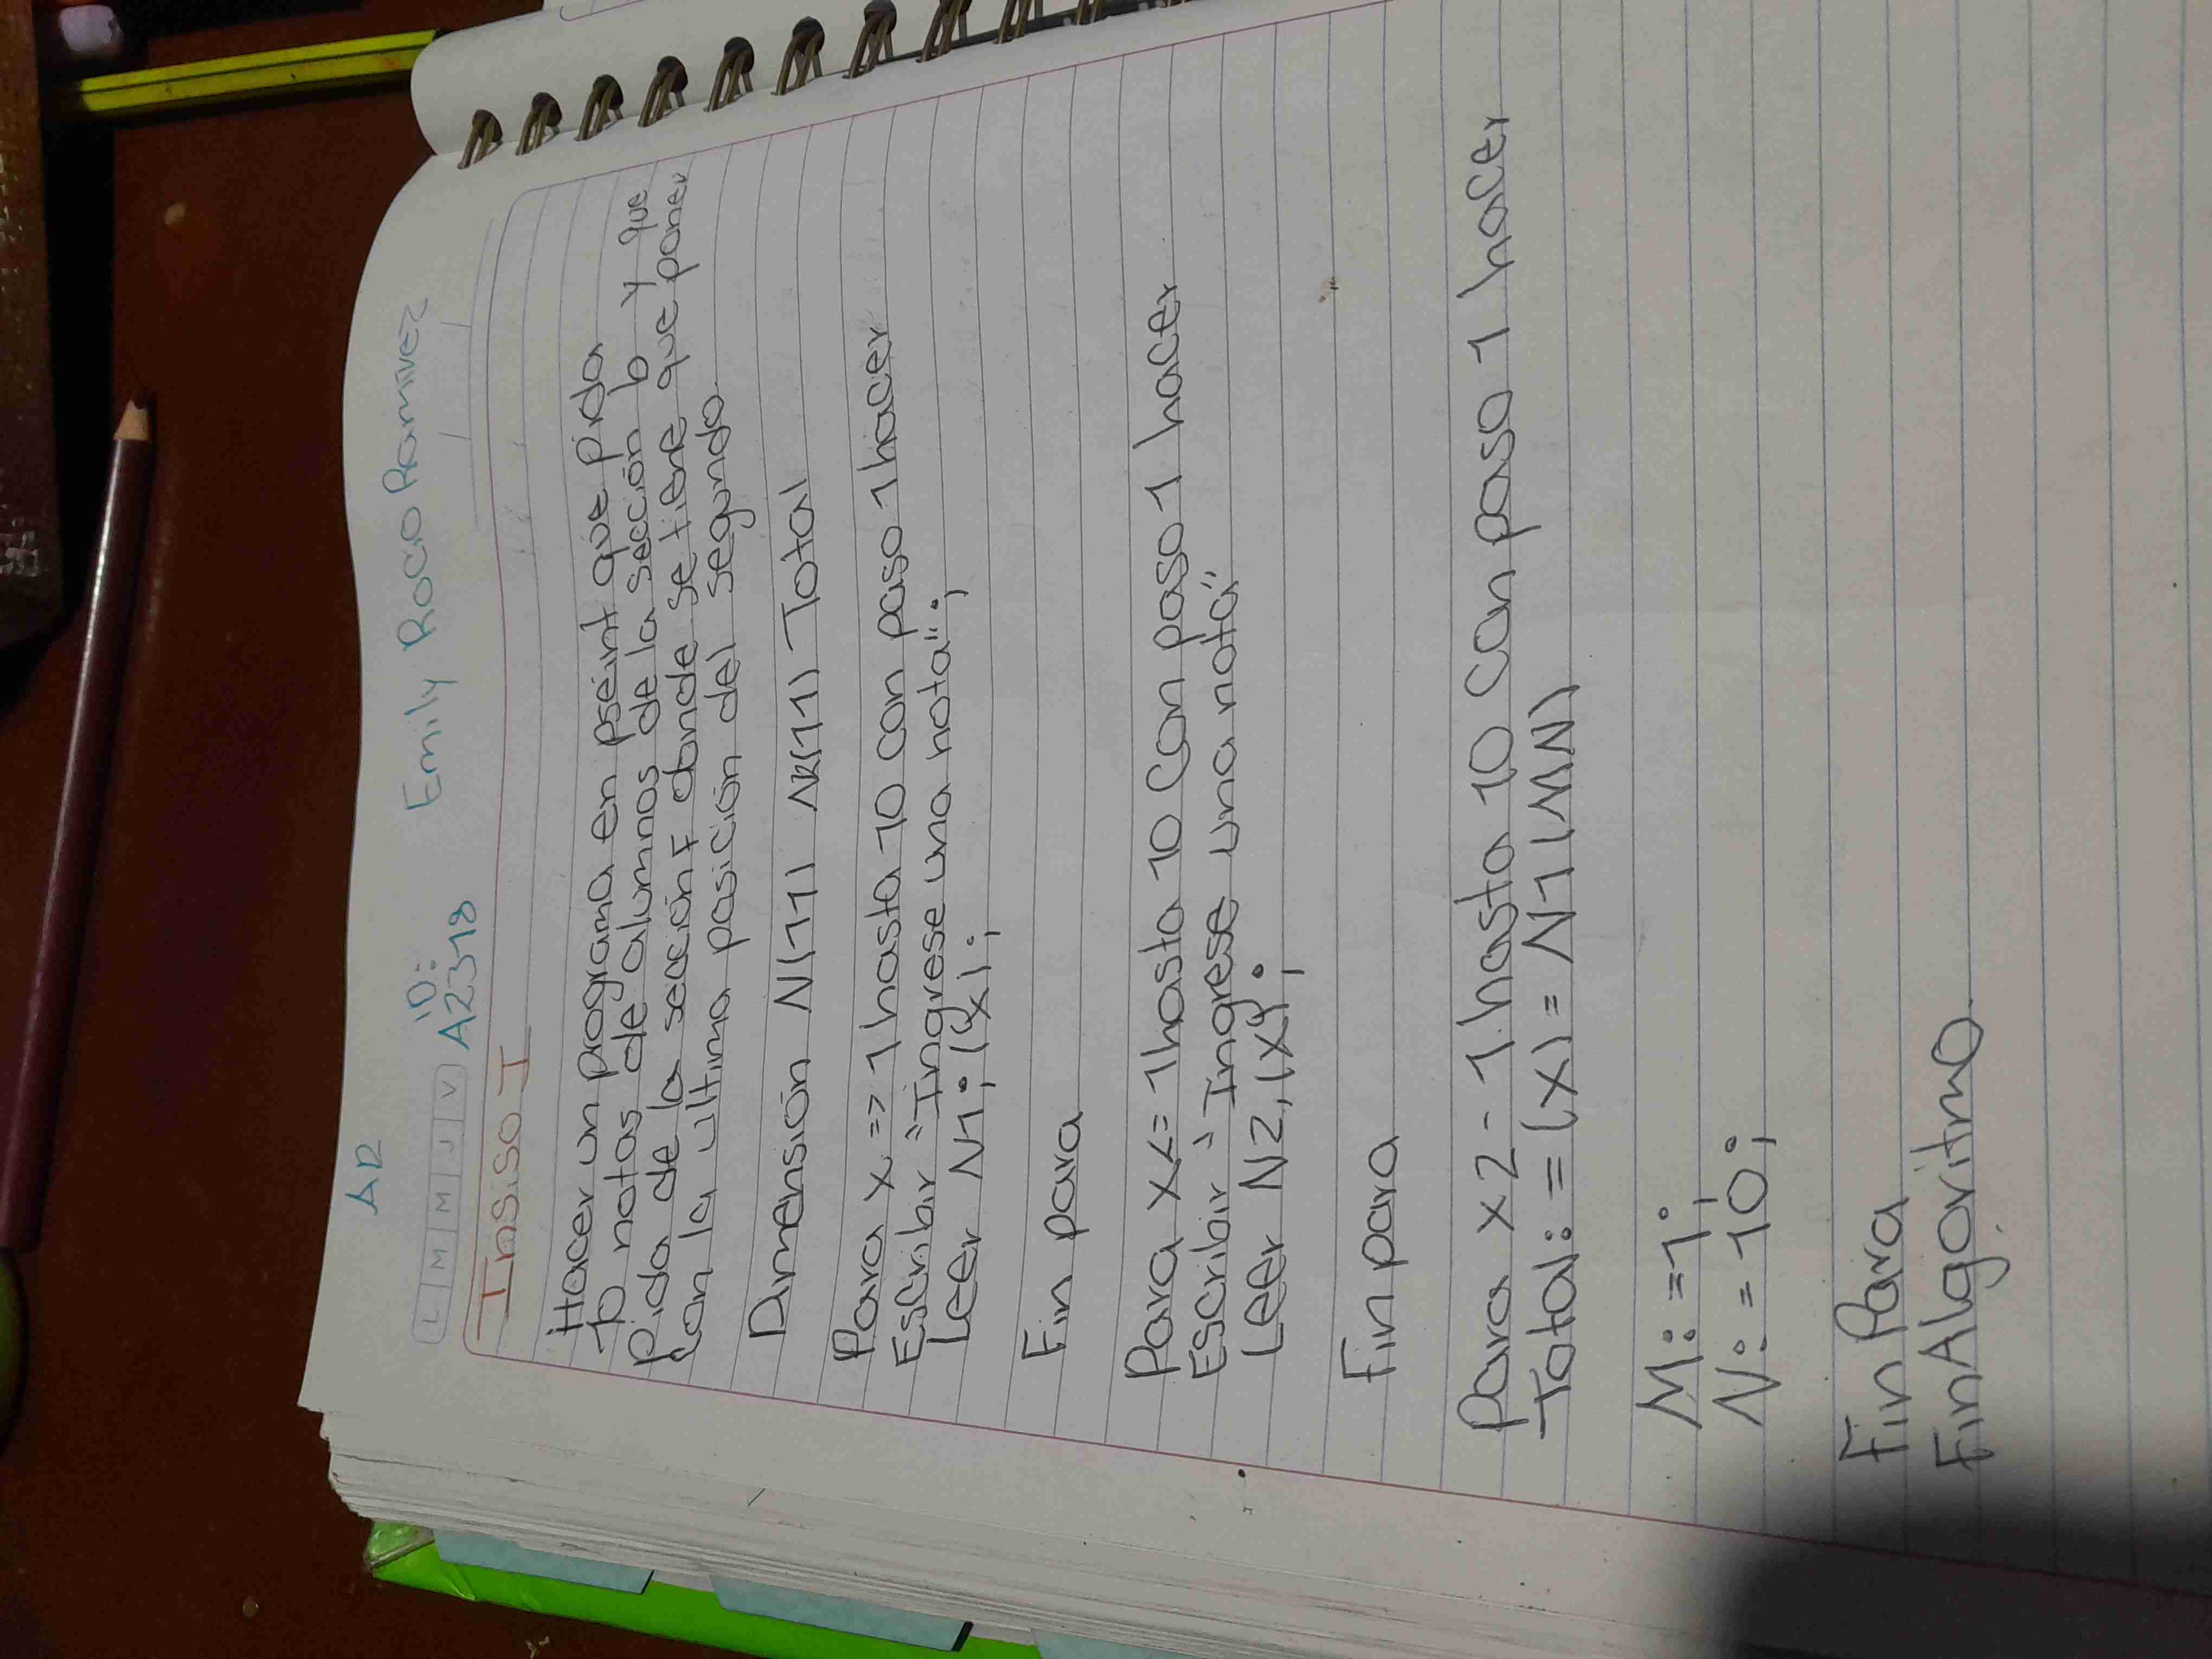 AR
L M M J V
ID:
A2318
Emily Roco Ramirez
Insiso I
Hacer un programa en pseint que pida
10 notas de alumnos de la sección b y que
pida de la sección F donde se tiene que poner
con la ultima posición del segundo
Dimensión N(11) Total
Para x => 1 hasta 10 con paso 1 hacer
Escribir "Ingrese una nota";
Leer N1; (x);
Fin para
Para x <= 1 hasta 10 con paso 1 hacer
Escribir "Ingrese una nota"
Leer N2, (x);
Fin para
Para x2 - 1 hasta 10 con paso 1 hacer
Total: = (x) = N1 (MN)
M: =1;
N: = 10;
Fin Para
Fin Algoritmo.